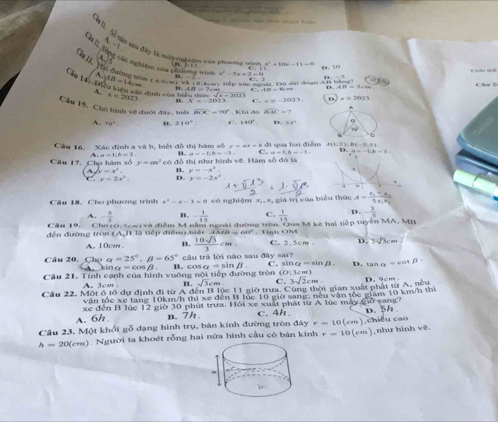 Câu 11. Số nào sau đây là một nghiệm của phương trình x² + 10x - 11 = 0
A. -1 B. -11 C. 11 D. 10
Câu 12. Tổng các nghiệm của phương trình
Câu 13. Hai đường tròn tiếp xúc ngoài. Độ dài đoạn AB bằng?
A. AB = 14cm B. AB = 7cm C. AB = 8cm D. AB = 2cm
Câu 14. Điều kiện xác định của biểu thức √(x + 2023)
A. x < 2023 B. X < -2023 C. x ≥ -2023 . D. x ≥ 2023
Câu 15. Cho hình vẽ dưới đây, biết BOC = 70°. Khi đó BAC = ?
A. 70° . B. 210° . C. 140° . D. 35° .
Câu 16. Xác định a và b, biết đồ thị hàm số y = ax + b đi qua hai điểm A(1;2); B(-2;5).
A. a = 1; b = 3 . B. a = -1; b = -3 . C. a = 1; b = -3 . D. a = -1; b = 3 .
Câu 17. Cho hàm số y = ax² có đồ thị như hình vẽ. Hàm số đó là
A. y = x² . B. y = -x² .
C. y = 2x² . D. y = -2x² .
Câu 18. Cho phương trình x² - x - 3 = 0 có nghiệm x₁, x₂ giá trị của biểu thức
A. -5/3 B. -1/15 C. 1/15 D. 5/3
Câu 19. Cho (O; 5cm) và điểm M nằm ngoài đường tròn. Qua M kẻ hai tiếp tuyến MA, MB
đến đường tròn (A,B là tiếp điểm) biết AMB = 60°. Tính OM
A. 10cm . B. 10√3/3 cm . C. 2,5cm . D. 2√3cm .
Câu 20. Cho α = 25°, β = 65° câu trả lời nào sau đây sai?
A. sin α = cos β . B. cos α = sin β C. sin α = sin β . D. tan α = cot β .
Câu 21. Tính cạnh của hình vuông nội tiếp đường tròn (O;3cm)
A. 3cm . B. √3cm . C. 3√2cm . D. 9cm .
Câu 22. Một ô tô dự định đi từ A đến B lúc 11 giờ trưa. Cùng thời gian xuất phát từ A, nếu
vận tốc xe tang 10km/h thì xe đến B lúc 10 giờ sang; nếu vận tốc giảm 10 km/h thì
xe đến B lúc 12 giờ 30 phút trưa. Hỏi xe xuất phát từ A lúc mấy giờ sang?
A. 6h . B. 7h . C. 4h . D. 5h .
Câu 23. Một khối gỗ dạng hình trụ, bán kính đường tròn đáy r = 10(cm), chiều cao
h = 20(cm). Người ta khoét rỗng hai nửa hình cầu có bán kính r = 10(cm), như hình vẽ.